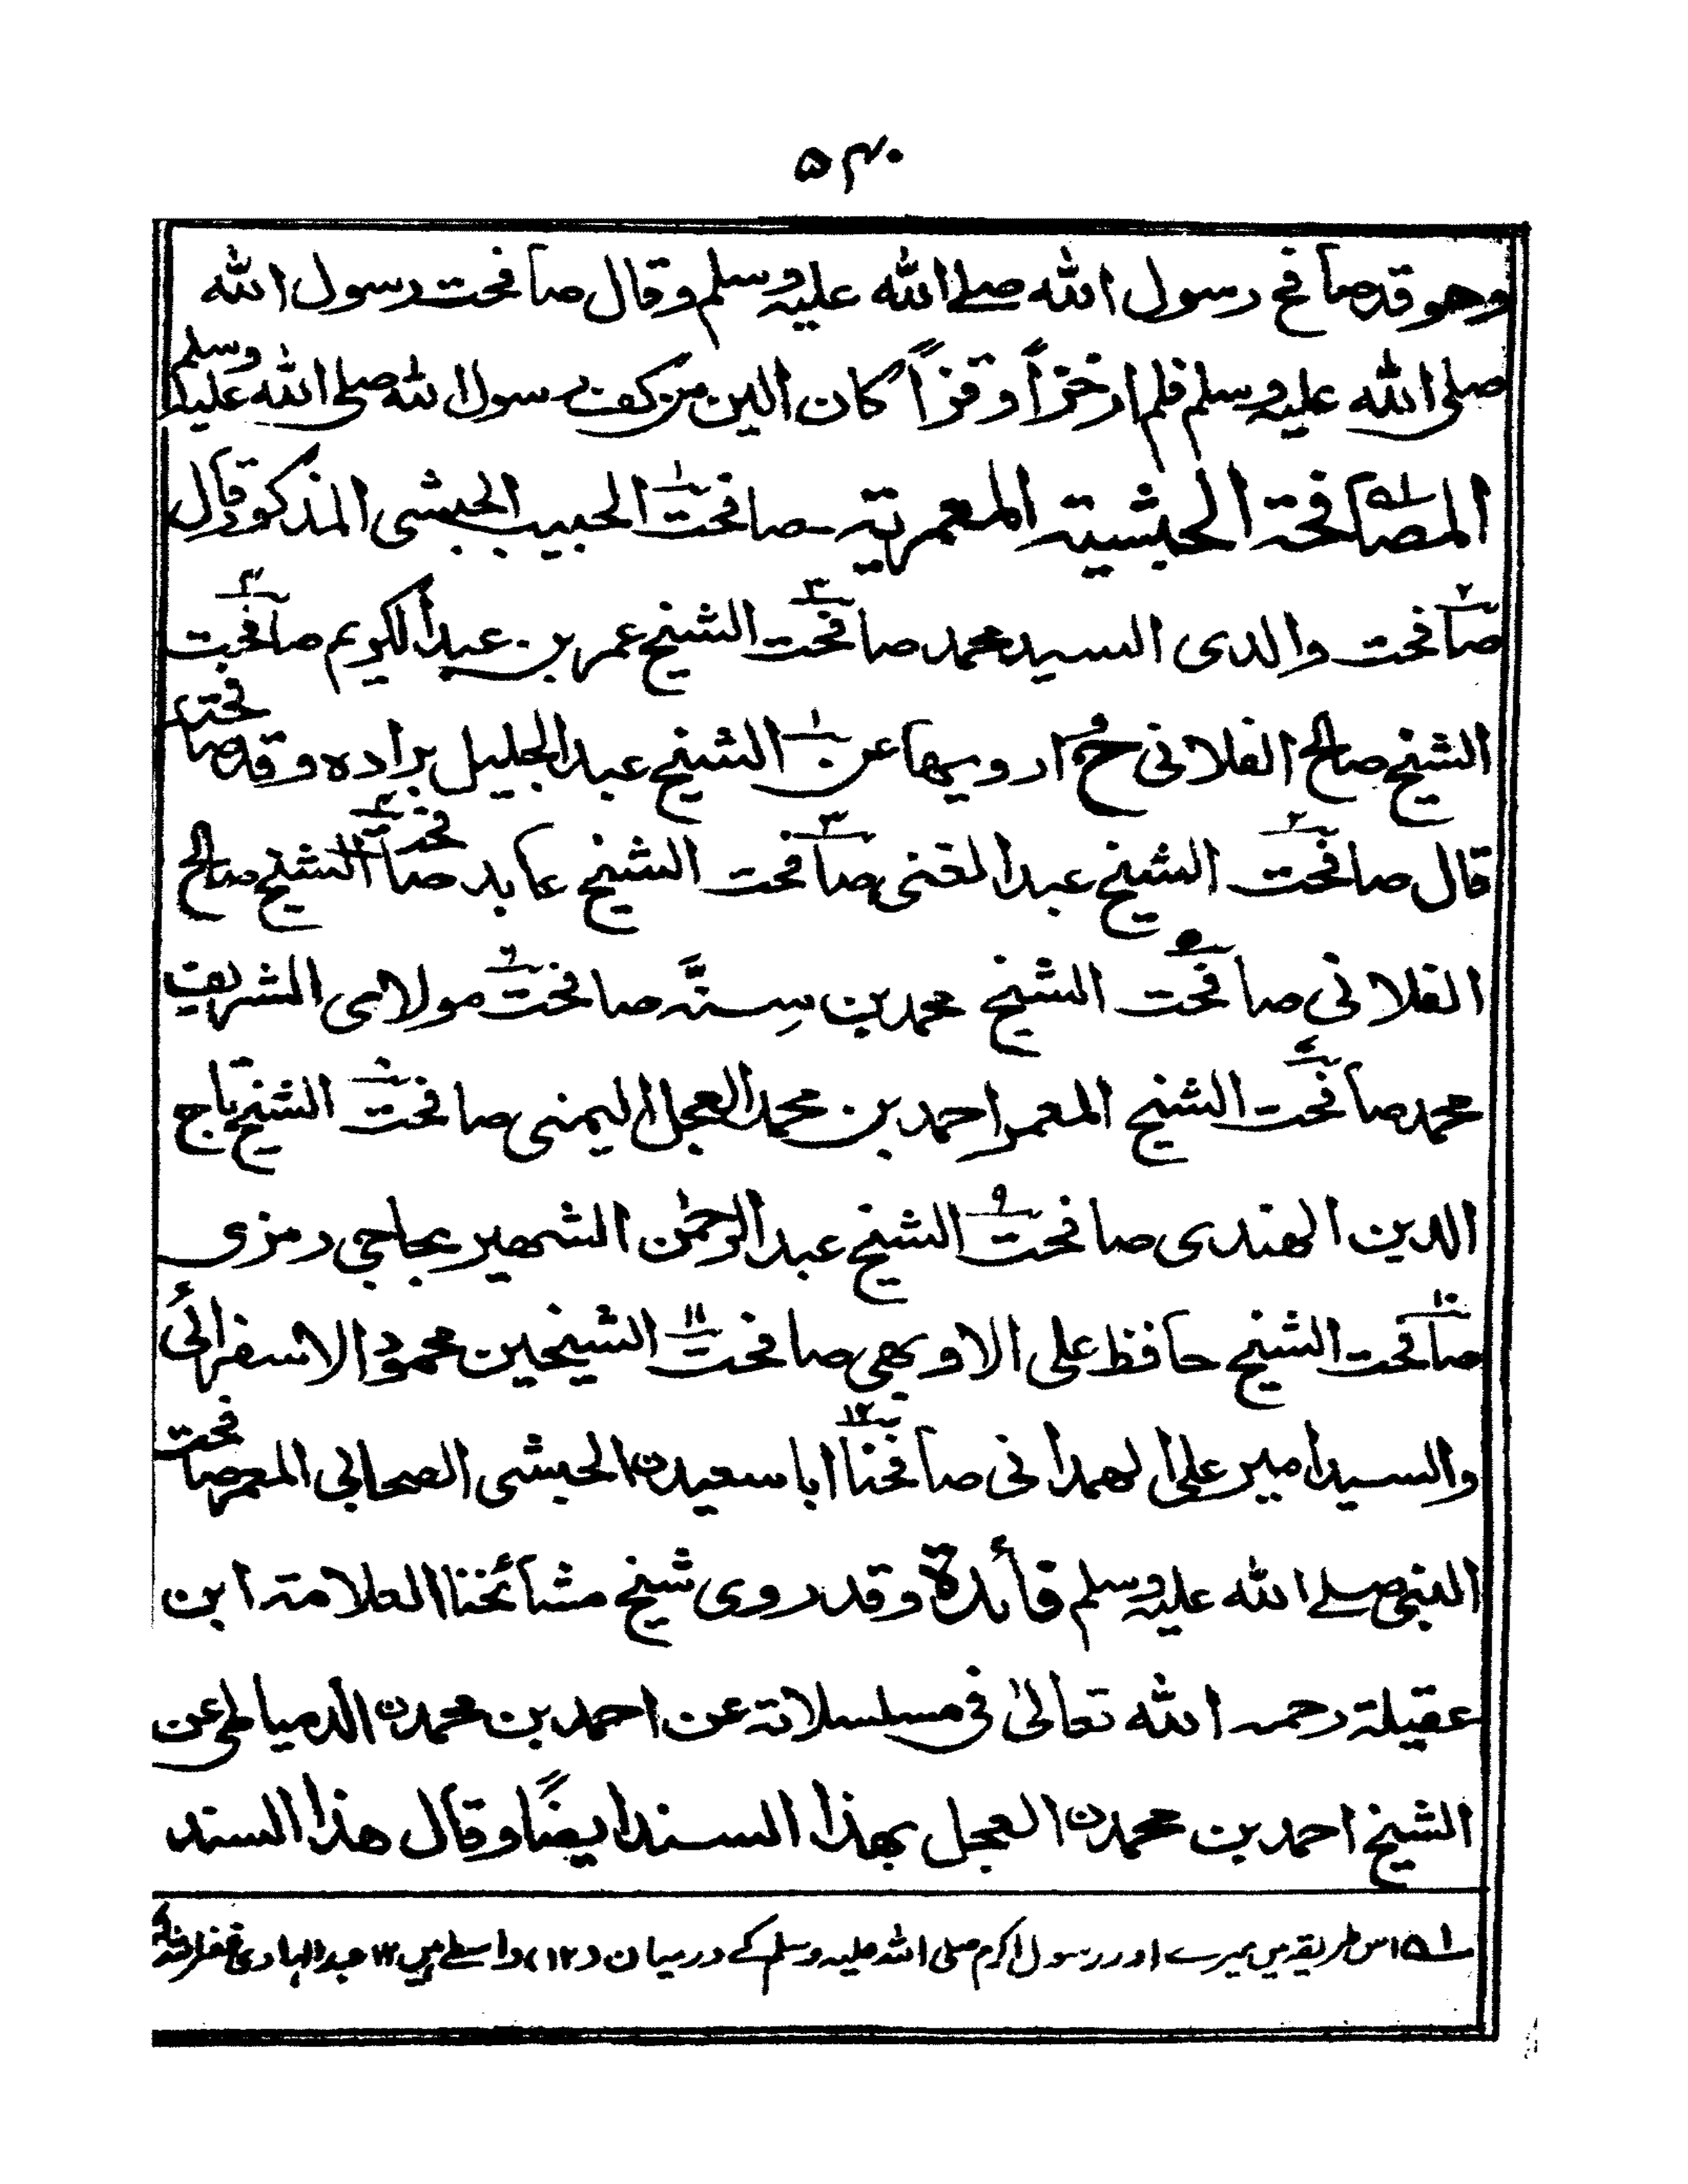 ۵۴۰
وهو قد صافح رسول الله صلے الله عليه وسلم وقال صافحت رسول الله
صلى الله عليه وسلم فلم ار خزاً وقزاً كان الين من كف رسول الله صلى الله عليه وسلم
المصافحة الحبشية المعمرية ـ صافحت الحبيب الحبشى المذكور قال
صافحت والدى السيد محمد صافحت الشيخ عمر بن عبد الكريم صافحت
الشيخ صالح الفلانى ح ارويها عن الشيخ عبد الجليل براده وقد صافحته
قال صافحت الشيخ عبد الغنى صافحت الشيخ عابد صافحت الشيخ صالح
الفلانى صافحت الشيخ محمد بن سِنَّه صافحت مولاى الشريف
محمد صافحت الشيخ المعمر احمد بن محمد العجل اليمنى صافحت الشيخ تاج
الدين الهندى صافحت الشيخ عبد الرحمٰن الشهير بحاجى رمزى
صافحت الشيخ حافظ على الاوبهى صافحت الشيخين محمود الاسفرائى
والسيد امير على الهمدانى صافحنا ابا سعيد ن الحبشى الصحابى المعمر صافحت
النبى صلے الله عليه وسلم فائدة وقد روى شيخ مشائخنا العلامة ابن
عقيلة رحمه الله تعالىٰ فى مسلسلاته عن احمد بن محمد ن الدمياطى عن
الشيخ احمد بن محمد ن العجل بهذا السند ايضًا وقال هذا السند
۵۱ اس طریقہ میں میرے اور رسول اکرم صلی اللہ علیہ وسلم کے درمیان (۱۲) واسطے ہیں ۱۲ عبد الہادی غفر اللہ لہ